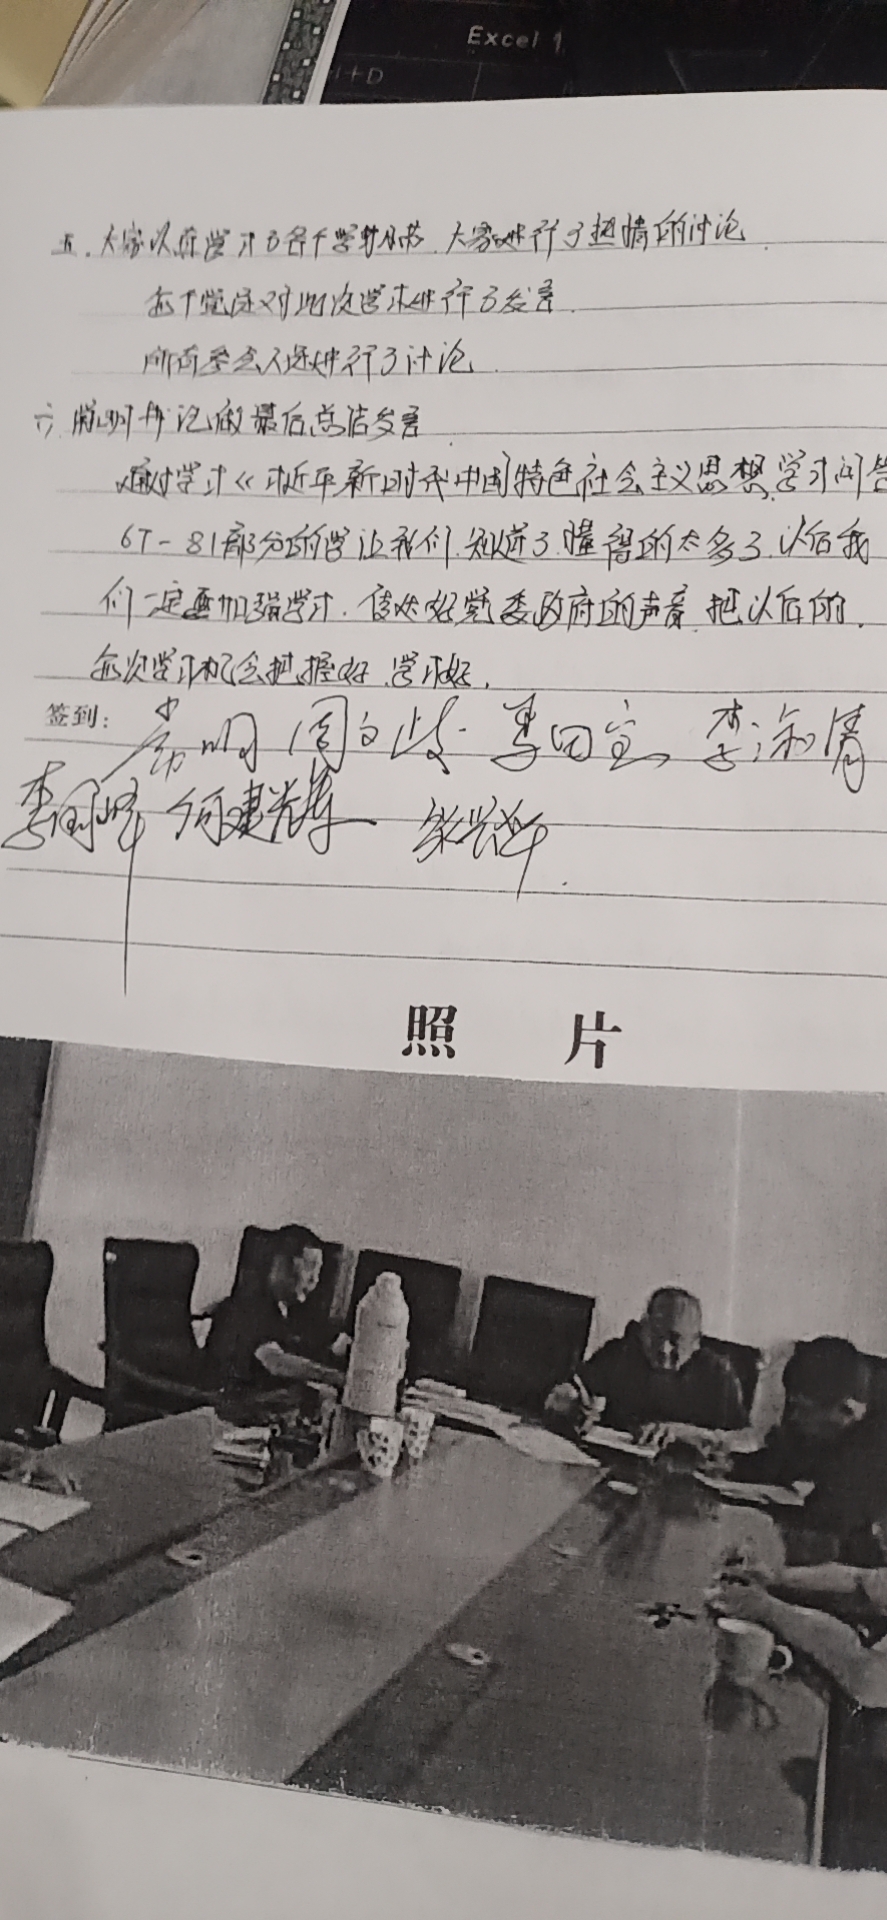 Excel 1
+D
五.大家以所学习各个学习内容,大家进行了热情的讨论
每个党员对此次学习进行了发言.
所有参会人选进行了讨论
六 书记做最后总结发言
通过学习《习近平新时代中国特色社会主义思想学习问答
67-81部分的学让我们知道了懂得的太多了,以后我
们一定要加强学习.传达好党委政府的声音,把以后的
每次学习机会把握好,学习好,
签到:
明 周 李 李 清
李国峰 何建
照 片